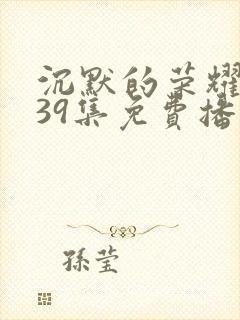 沉默的荣耀
39集免費播
孫莹